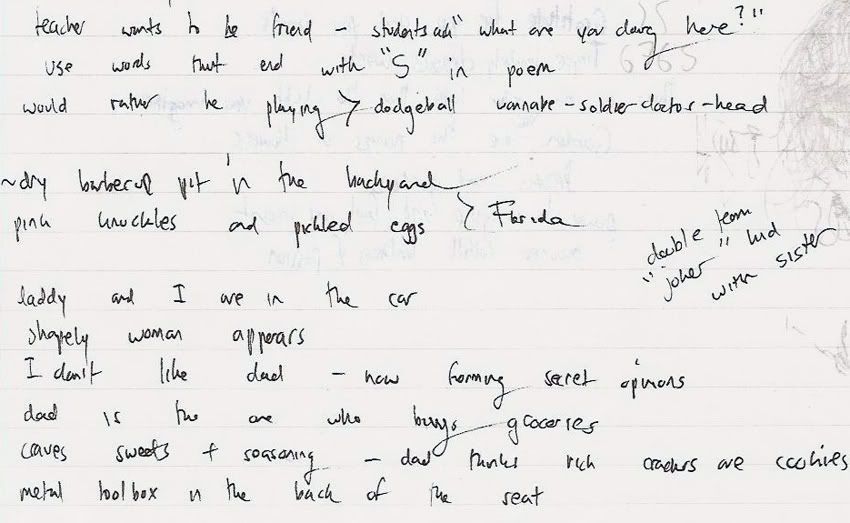 teacher wants to be friend - students ask "what are you doing here?"
use words that end with "S" in poem
would rather be playing > dodgeball wannabe-soldier-doctor-head
~dry barbecue pit in the backyard
pink knuckles and pickled eggs } Florida
"double team
joker" kid
with sister
laddy and I are in the car
shapely woman appears
I don't like dad - now forming secret opinions
dad is the one who buys groceries
craves sweets + seasoning - dad thinks rich crackers are cookies
metal toolbox in the back of the seat